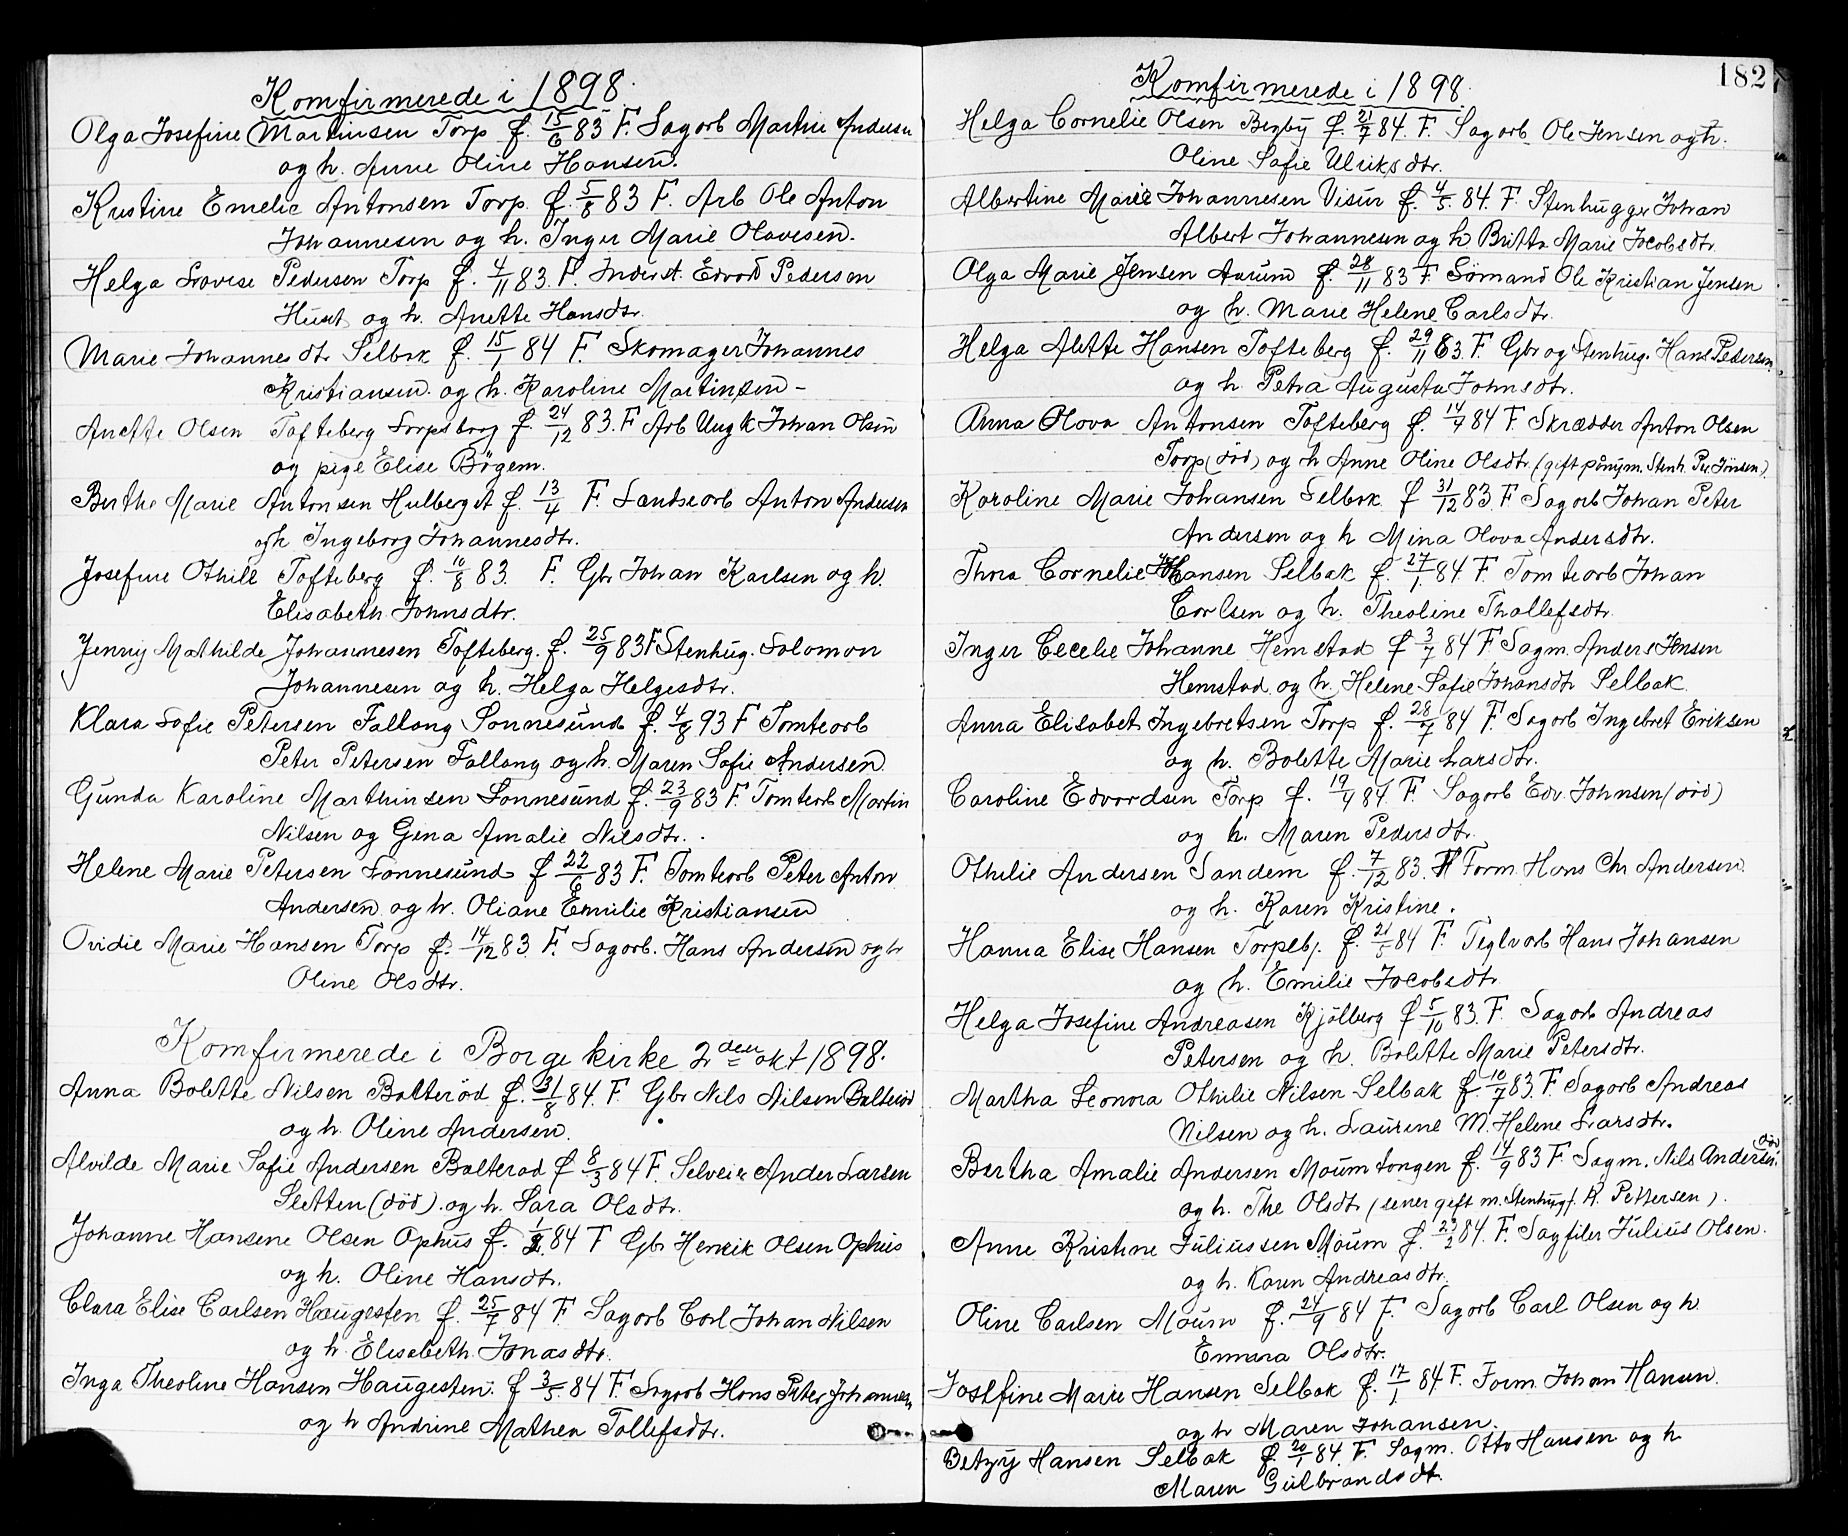 Komfirmerede i 1898.
Olga Josefine Martinsen Torp f. 15/6 83 F. Sagarb Martin Andersen
og h. Anne Oline Hansen.
Kristine Emelie Antonsen Torp. f. 5/8 83 F. Arb Ole Anton
Johannesen og h. Inger Marie Olavesen.
Helga Lovise Pedersen Torp f. 4/11 83. F. Inderst. Edvard Pedersen
og h. Anette Hansdtr.
Marie Johannesdtr Selbak f. 15/1 84 F. Skomager Johannes
Kristiansen. og h. Karoline Martinsen -
Anette Olsen Tofteberg Sarpsborg f. 24/12 83. F Arb Ungk Johan Olsen
og pige Elise Bøgem.
Berthe Marie Antonsen Hulberget f. 13/4 F. Landsearb Anton Andersen
og h Ingeborg Johannesdtr.
Josefine Othile Tofteberg f. 10/8 83. F. Gbr Johan Karlsen og h.
Elisabeth Johnsdtr.
Jenny Mathilde Johannesen Tofteberg. f. 25/9 83 F Stenhug. Solomon
Johannesen og h. Helga Helgesdtr.
Klara Sofie Petersen Fallang Sonnesund f. 4/8 93 F Tomtearb
Peter Petersen Fallang og h. Maren Sofie Andersen
Gunda Karoline Marthinsen Lonnesund f. 23/9 83 F. Tomtearb Martin
Nilsen og Gina Amalie Nilsdtr.
Helene Marie Petersen Lonnesund f 22/6 83 F. Tomtearb Peter Anton
Andersen og h. Oliane Emilie Kristiansen
Ovidie Marie Hansen Torp f. 14/12 83 F. Sagarb. Hans Andersen og h
Oline Olsdtr.
Komfirmerede i Borge kirke 2den okt 1898.
Anna Bolette Nilsen Balterød f. 31/8 84. F. Gbr Nils Nilsen Balterød
og h Oline Andersen.
Alvilde Marie Sofie Andersen Balterød f 8/3 84 F. Selveier Anders Larsen
Sletten (død). og h. Sara Olsdtr.
Johanne Hansene Olsen Ophus f. 84 F Gbr Henrik Olsen Ophus
og h. Oline Hansdtr.
Clara Elise Carlsen Haugesten f. 25/7 84 F. Sagarb Carl Johan Nilsen
og h Elisabeth Jonasdtr.
Inga Theoline Hansen Haugesten. f 3/5 84 F. Sagarb Hans Peter Johannesen
og h Andrine Mathea Tollefsdtr.
182
Komfirmerede i 1898.
Helga Cornelie Olsen Begby f. 21/7 84. F. Sagarb Ole Jensen og h.
Oline Sofie Ulriksdtr.
Albertine Marie Johannesen Visur f. 4/5 84. F. Stenhugger Johan
Albert Johannesen og h Britta Marie Jacobsdtr.
Olga Marie Jensen Aarum f. 28/11 83 F. Sømand Ole Kristian Jensen
og h. Marie Helene Carlsdtr.
Helga Alette Hansen Tofteberg f. 29/11 83. F. Gbr og Stenhug. Hans Pedersen
og h. Petra Augusta Johnsdtr.
Anna Olava Antonsen Tofteberg f. 14/4 84 F. Skrædder Anton Olsen
Torp (død) og h Anne Oline Olsdtr. (gift pånym. Stenh. Per Jensen.)
Karoline Marie Johansen Selbak f 31/12 83. F Sagarb Johan Peter
Andersen og h Mina Olava Andersdtr.
Thora Cornelie Johansen Selbak f. 27/1 84 F. Tomtearb Johan
Carlsen og h. Theoline Thollefsdtr.
Inger Cecelie Johanne Hemstad f 3/7 84 F. Sagm. Anders Jensen
Hemstad og h. Helene Sofie Johansdtr Selbak.
Anna Elisabet Ingebretsen Torp f. 28/7 84 F. Sagarb Ingebret Eriksen
og h. Bolette Marie Larsdtr.
Caroline Edvardsen Torp f. 19/4 84. F. Sagarb Edv. Johnsen (død)
og h. Maren Pedersdtr.
Othilie Andersen Sandem f. 7/12 83. F Form. Hans Chr Andersen
og h. Karen Kristine.
Hanna Elise Hansen Torpebj. f. 21/5 84 F. Teglvarb Hans Johansen
og h. Emilie Jacobsdtr.
Helga Josefine Andreasen Kjølberg f 5/10 83. F. Sagarb Andreas
Petersen og h. Bolette Marie Petersdtr.
Martha Leonora Othilie Nilsen Selbak f. 10/7 83. F. Sagarb Andreas
Nilsen og h. Laurine M. Helene Larsdtr.
Bertha Amalie Andersen Moum tangen f. 14/9 83 F. Sagm. Nils Andersen. død
og h. The Olsdtr (sener gift m. Stenhugf. A. Pettersen).
Anne Kristine Juliussen Moum f. 23/2 84. F. Sagfiler Julius Olsen.
og h. Karen Andreasdtr.
Oline Carlsen Moum f. 24/9 84 F. Sagarb Carl Olsen og h
Emma Olsdtr.
Josefine Marie Hansen Selbak f. 17/1 84 F. Form. Johan Hansen.
og h Maren Johansen.
Betzy Hansen Selbak f. 20/1 84. F. Sagm. Otto Hansen og h
Maren Gulbrandsdt.